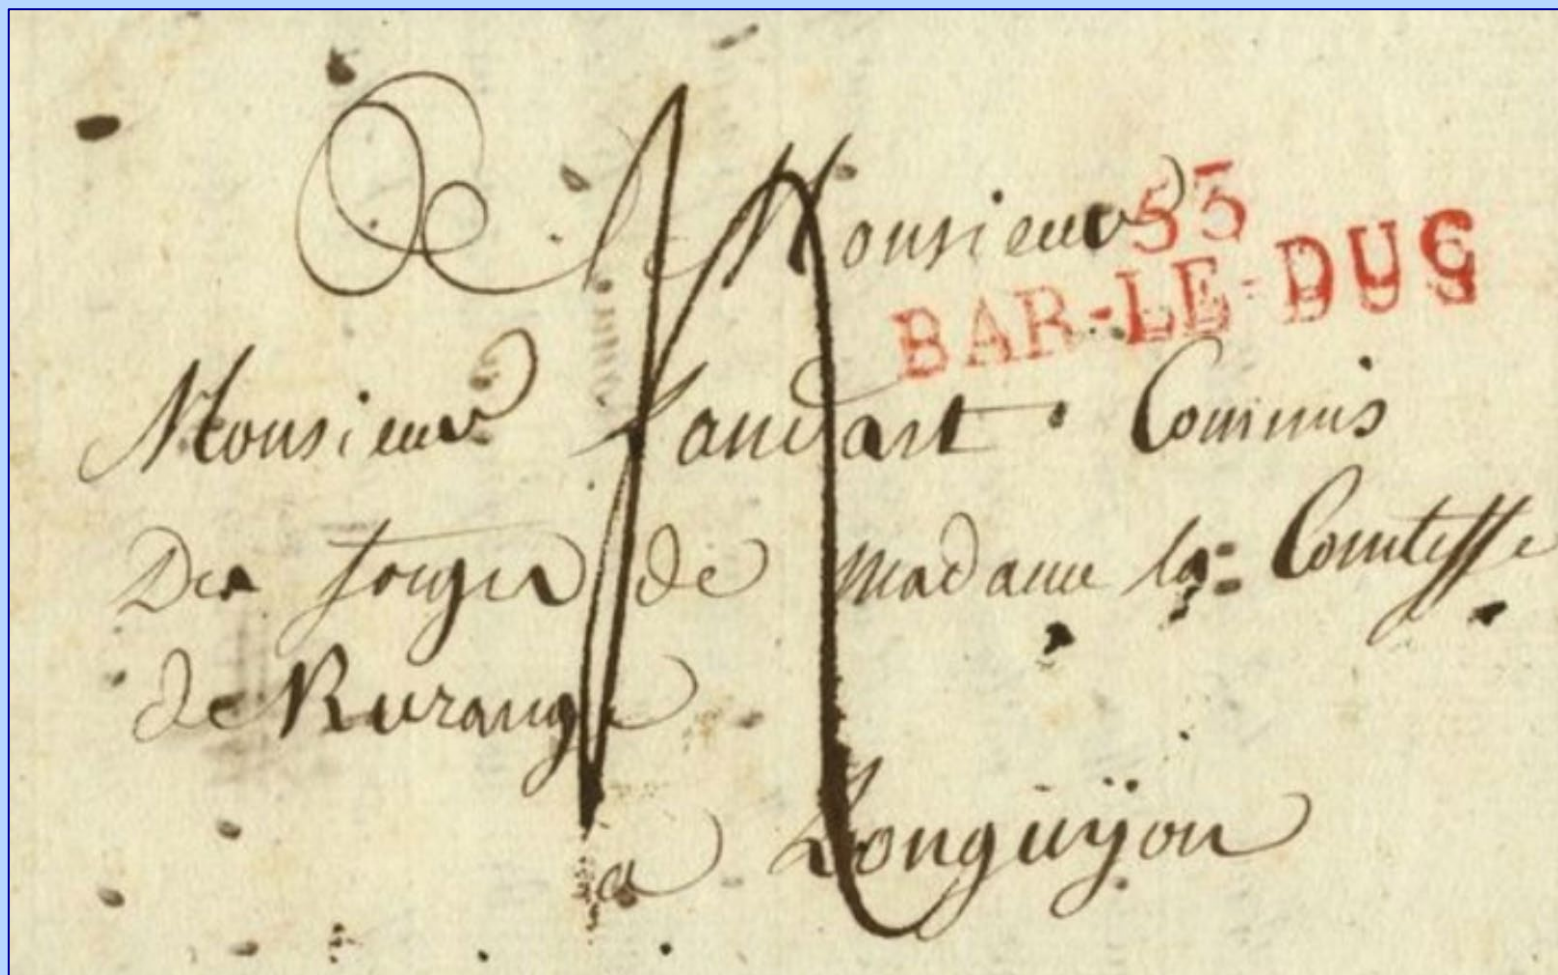 A Monsieur
53
BAR-LE-DUC
Monsieur Jandart Commis
Des forges de Madame la Comtesse
de Rurange
a Longuÿon